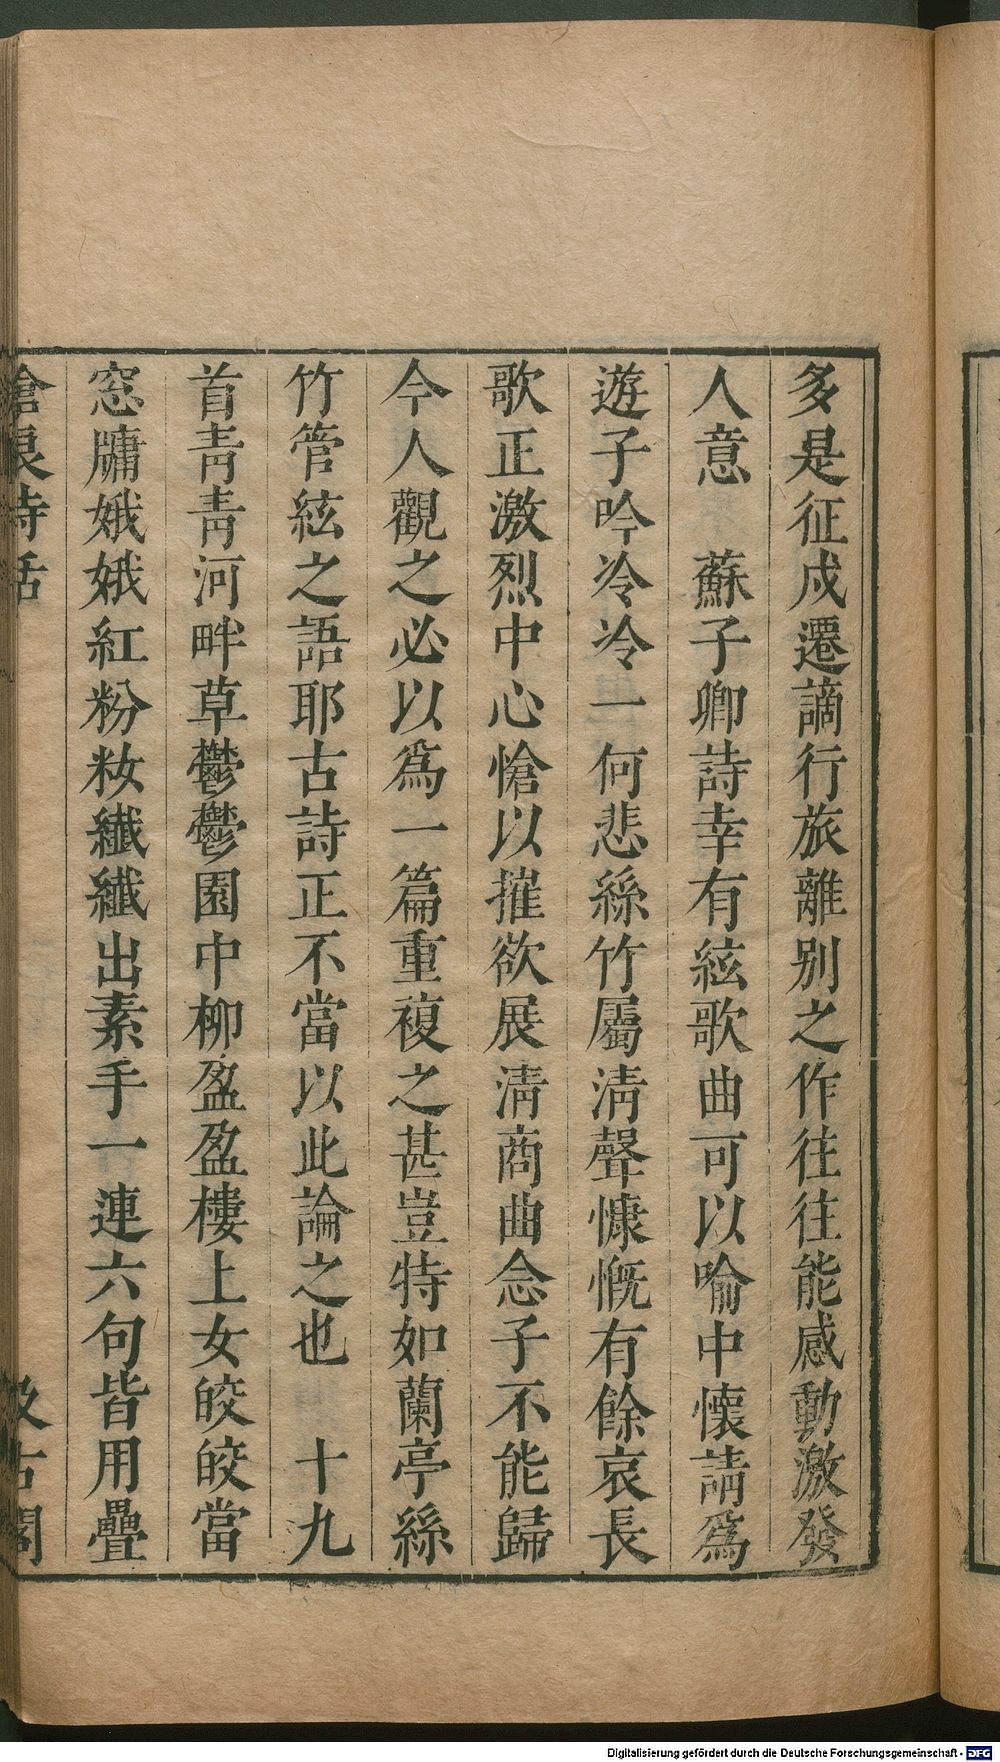 多是征戍遷謫行旅離別之作往往能感動激發
人意　蘇子卿詩幸有絃歌曲可以喻中懷請爲
遊子吟泠泠一何悲絲竹厲淸聲慷慨有餘哀長
歌正激烈中心愴以摧欲展淸商曲念子不能歸
今人觀之必以爲一篇重複之甚豈特如蘭亭絲
竹管絃之語耶古詩正不當以此論之也　十九
首靑靑河畔草鬱鬱園中柳盈盈樓上女皎皎當
窓牖娥娥紅粉妝纖纖出素手一連六句皆用疊
滄浪詩話　汲古閣
Digitalisierung gefördert durch die Deutsche Forschungsgemeinschaft - DFG